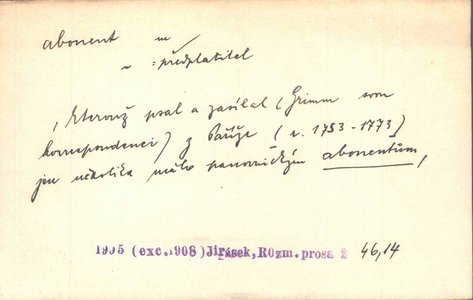 abonent m
~ : předplatitel
, kterouž psal a zasílal (Grimm svou
korrespondenci) z Paříže (r. 1753-1773)
jen několika málo panovnickým abonentům,
1905 (exc.1908) Jirásek, Rozm. prosa 2 46,14